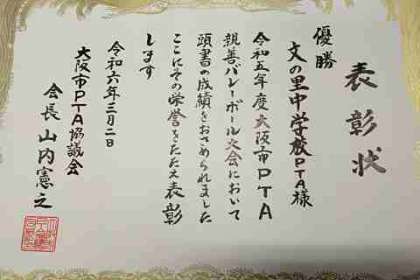 表彰状
優勝
文の里中学校PTA様
令和五年度大阪市PTA
親善バレーボール大会において
頭書の成績をおさめられました
ここにその栄誉をたたえ表彰
します
令和六年三月二日
大阪市PTA協議会
会長 山内憲之